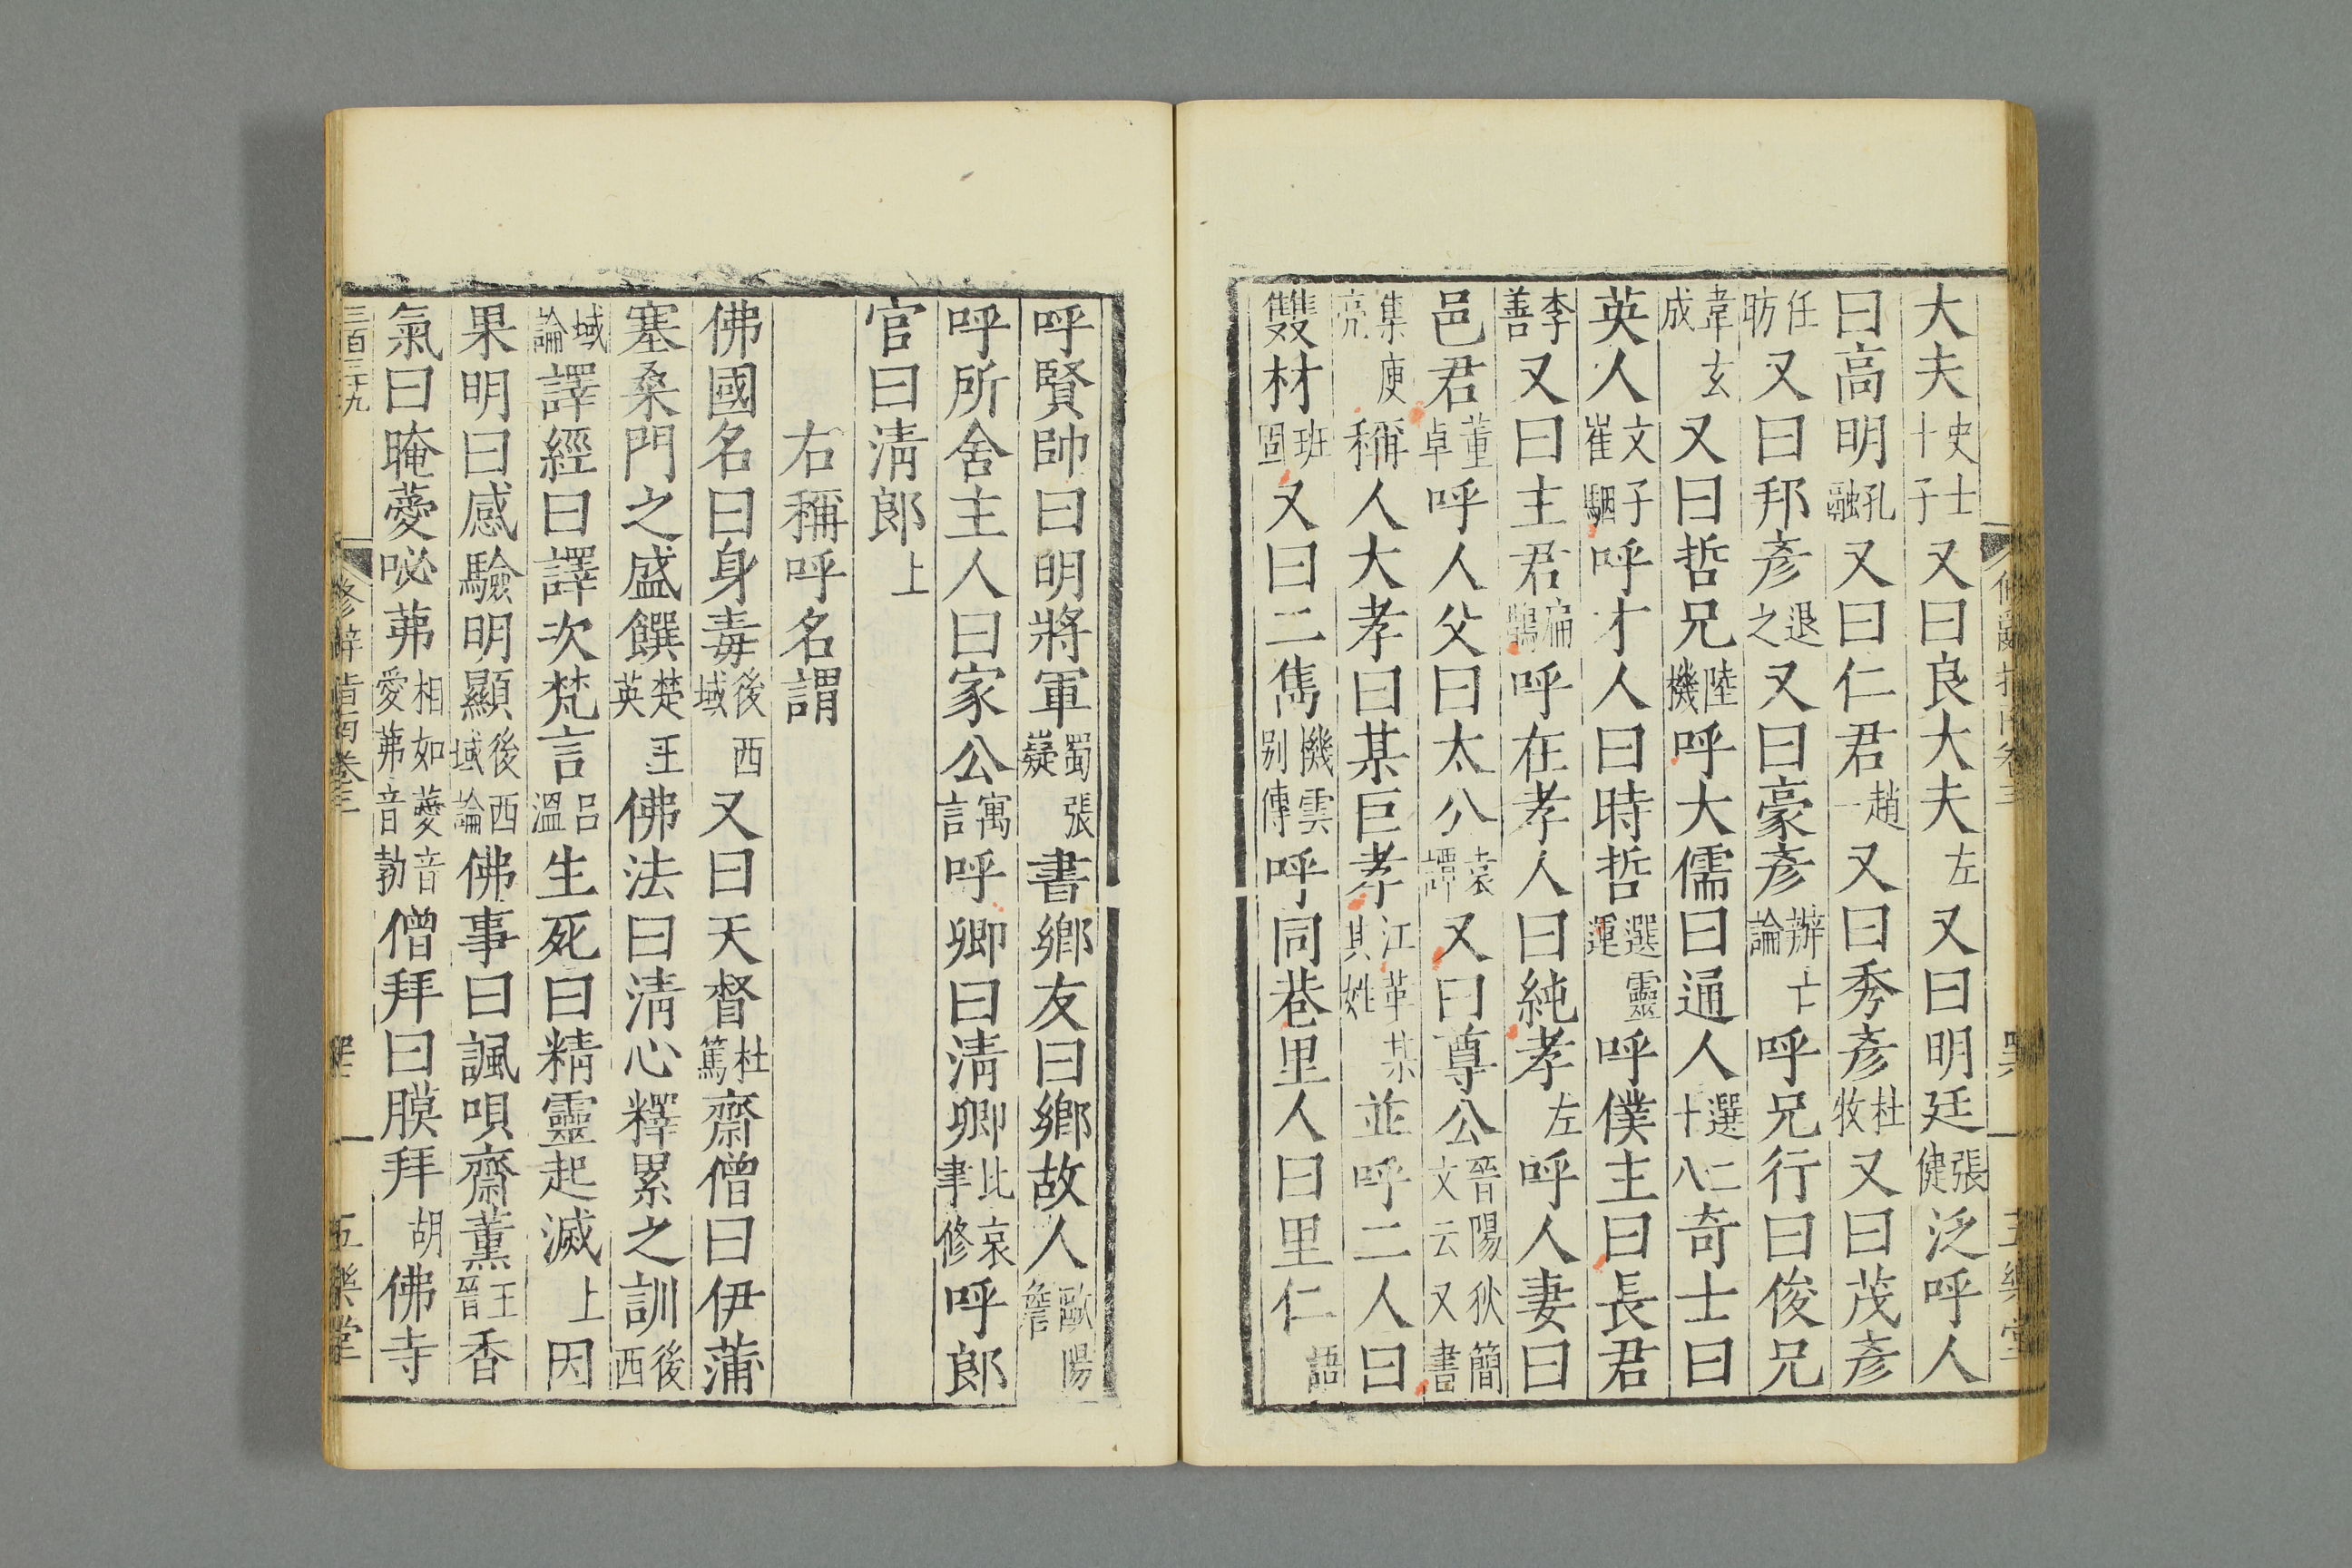 大夫史士十子又曰良大夫左又曰明廷張健泛呼人
曰高明孔融又曰仁君趙一又曰秀彥杜牧又曰茂彥
任昉又曰邦彥退之又曰豪彥辯亡論呼兄行曰俊兄
韋玄成又曰哲兄陸機呼大儒曰通人選二十八奇士曰
英人文子崔駰呼才人曰時哲選靈運呼僕主曰長君
李善又曰主君扁鵲呼在孝人曰純孝左呼人妻曰
邑君董卓呼人父曰太公袁譚又曰尊公晉陽狄簡文云又書
集庾亮稱人大孝曰某巨孝江革某其姓並呼二人曰
雙材班固又曰二雋機雲別傳呼同巷里人曰里仁語
呼賢帥曰明將軍蜀張嶷書鄉友曰鄉故人歐陽詹
呼所舍主人曰家公寓言呼卿曰清卿比哀聿修呼郎
官曰清郎上
右稱呼名謂
佛國名曰身毒後西域又曰天督杜篤齋僧曰伊蒲
塞桑門之盛饌楚王英佛法曰清心釋累之訓後西
域論譯經曰譯次梵言呂溫生死曰精靈起滅上因
果明曰感驗明顯後西域論佛事曰諷唄齋薰王晉香
氣曰晻薆咇茀相如薆音愛茀音勃僧拜曰膜拜胡佛寺
三百三十九
修辭指南卷三
五樂堂